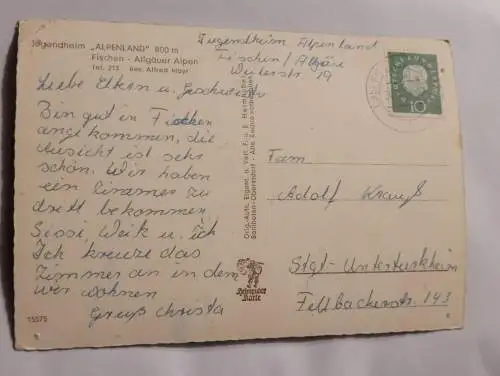 Jugendheim „ALPENLAND" 800 m
Fischen - Allgäuer Alpen
Tel. 213 Bes. Alfred Mayr
Jugendheim Alpenland
Fischen / Allgäu
Weilerstr. 19
Liebe Eltern u. Geschwister
Bin gut in Fischen
angekommen, die
Aussicht ist sehr
schön. Wir haben
ein Zimmer zu
dritt bekommen
Sissi, Weik u. ich
Ich kreuze das
Zimmer an in dem
wir wohnen
Gruß Christa
15575
Orig.-Aufn. Eigent. u. Verl. F. u. E. Heimhuber
Sonthofen-Oberstdorf - Alle Rechte vorbehalten
Heimhuber
Karte
DEUTSCHE BUNDESPOST
10
Fam.
Adolf Krauß
Stgt-Untertürkheim
Fellbacherstr. 143